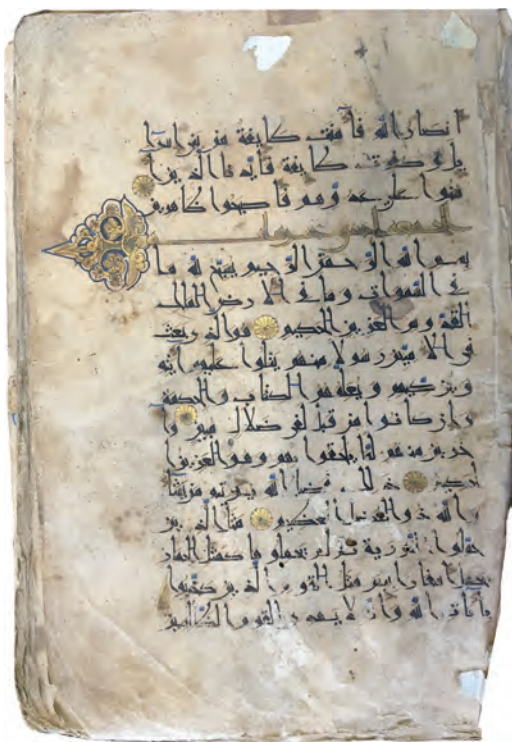 انصار الله فآمنت طايفة من بني اسرآ
يل وكفرت طايفة فايدنا الذين آ
منوا على عدوهم فاصبحوا ظاهرين
الجمعة
بسم الله الرحمن الرحيم يسبح لله ما
في السموات وما في الارض الملك
القدوس العزيز الحكيم هو الذي بعث
في الاميين رسولا منهم يتلوا عليهم آيته
ويزكيهم ويعلمهم الكتاب والحكمة
وان كانوا من قبل لفي ضلال مبين وآ
خرين منهم لما يلحقوا بهم وهو العزيز ا
لحكيم ذلك فضل الله يؤتيه من يشآ
والله ذو الفضل العظيم مثل الذين
حملوا التورية ثم لم يحملوها كمثل الحمار
يحمل اسفارا بئس مثل القوم الذين كذبوا
بآيات الله والله لا يهدي القوم الظالمين